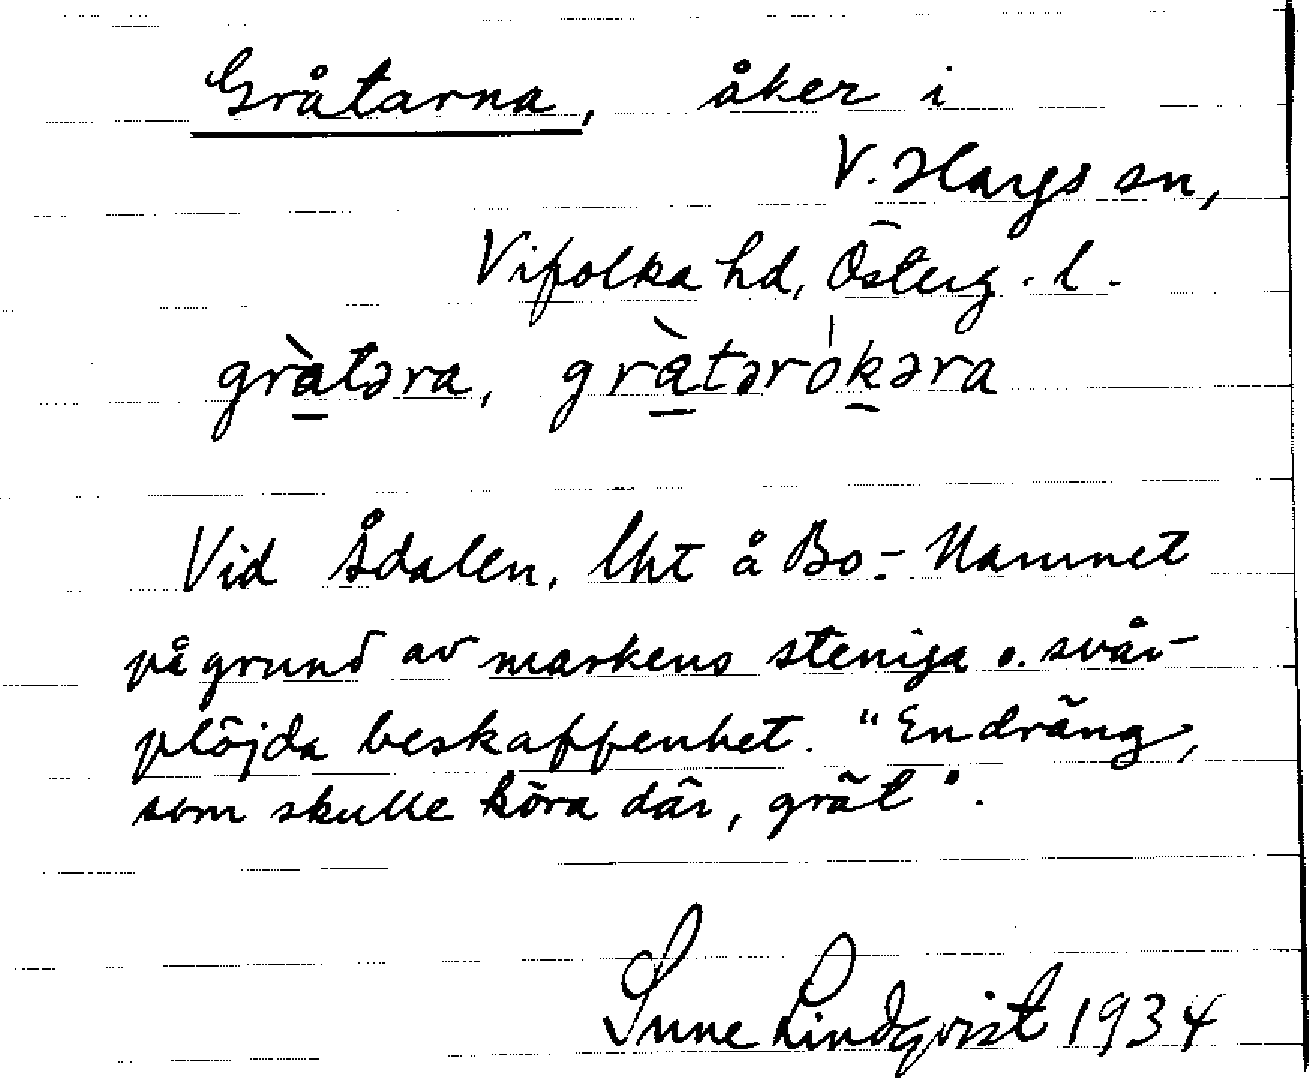 Gråtarna, åker i
V. Hargs sn,
Vifolka hd, Österg. l.
gràtəra, gràtərókəra
Vid Ådalen. Uht å Bo.- Namnet
på grund av markens steniga o. svår-
plöjda beskaffenhet. "En dräng,
som skulle köra där, grät".
Sune Lindqvist 1934